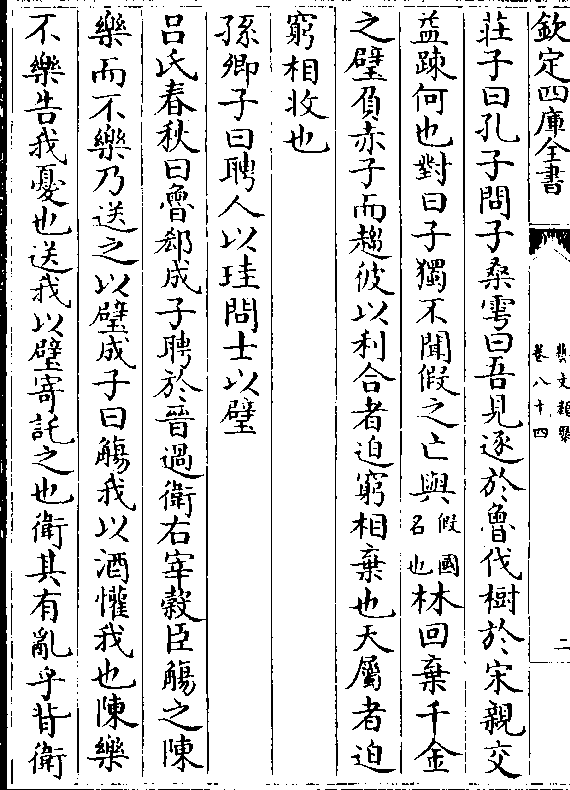 欽定四庫全書
藝文類聚
卷八十四
二
莊子曰孔子問子桑雩曰吾見逐於魯伐樹於宋親交
益踈何也對曰子獨不聞假之亡與假國名也林回棄千金
之璧負赤子而趨彼以利合者迫窮相棄也天屬者迫
窮相收也
孫卿子曰聘人以珪問士以璧
呂氏春秋曰魯郄成子聘於晉過衛右宰糓臣觴之陳
樂而不樂乃送之以璧成子曰觴我以酒懽我也陳樂
不樂告我憂也送我以璧寄託之也衛其有亂乎背衛